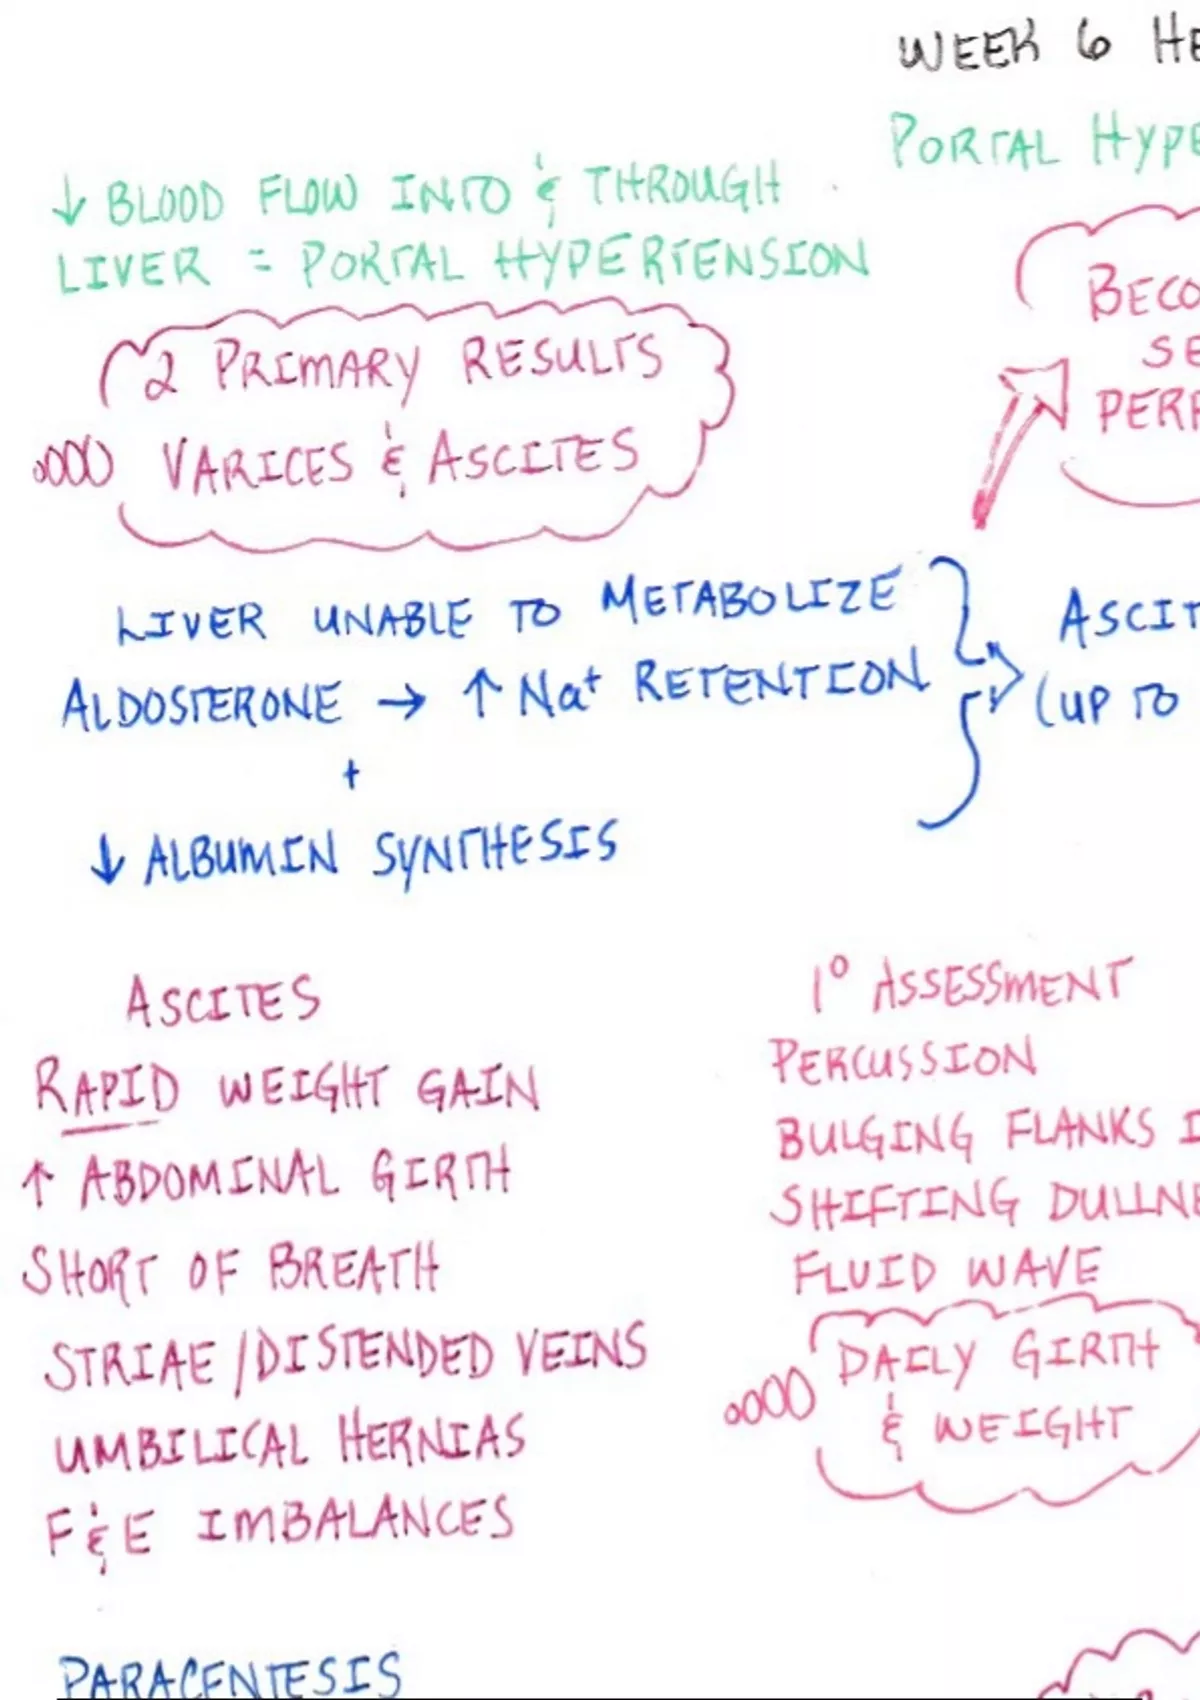 WEEK 6 HE
PORTAL HYPE
↓ BLOOD FLOW INTO & THROUGH
LIVER = PORTAL HYPERTENSION
2 PRIMARY RESULTS
VARICES & ASCITES
BECO
SE
PER
LIVER UNABLE TO METABOLIZE
ALDOSTERONE → ↑ Na+ RETENTION
+
↓ ALBUMIN SYNTHESIS
ASCIT
(UP TO
ASCITES
RAPID WEIGHT GAIN
↑ ABDOMINAL GIRTH
SHORT OF BREATH
STRIAE/DISTENDED VEINS
UMBILICAL HERNIAS
F&E IMBALANCES
1° ASSESSMENT
PERCUSSION
BULGING FLANKS I
SHIFTING DULLNE
FLUID WAVE
DAILY GIRTH
& WEIGHT
PARACENTESIS